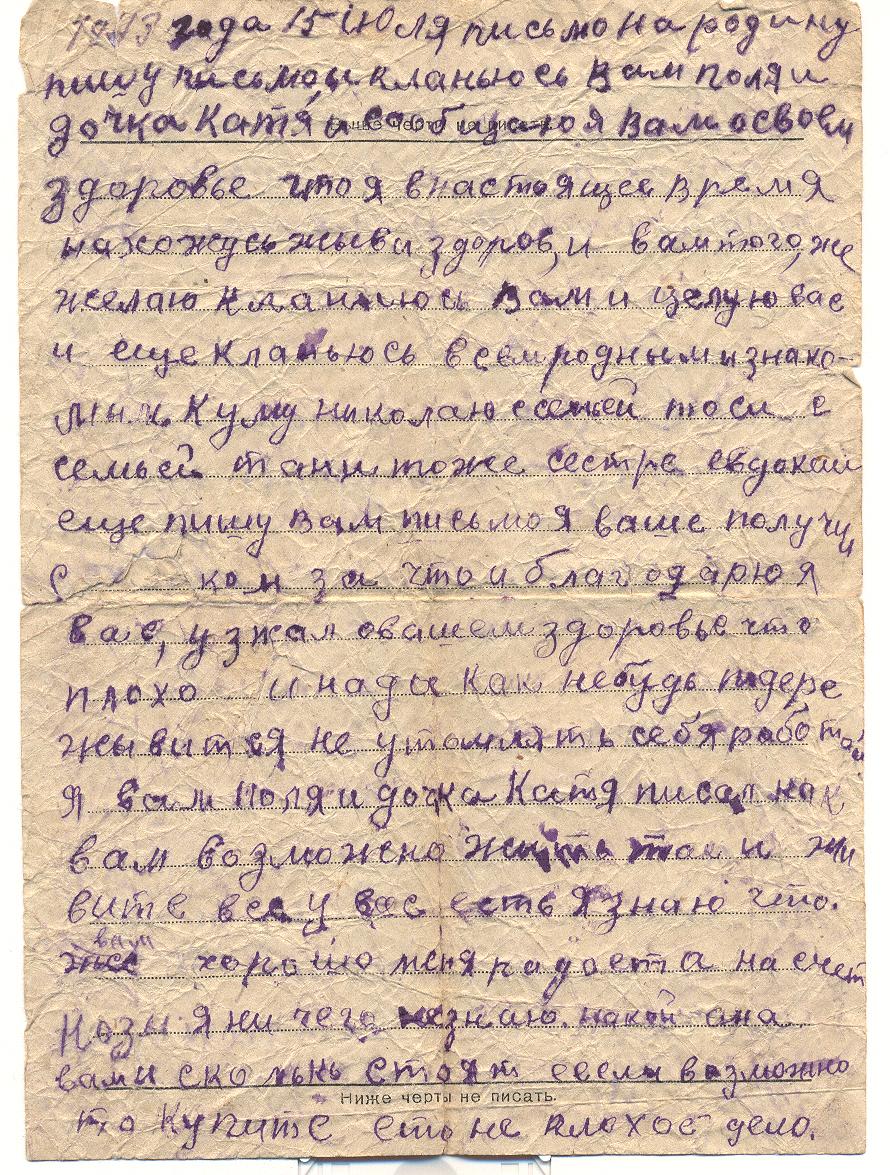 1943 года 15 июля письмо на родину
пишу письмо и кланьюсь вам поля и
Выше черты не писать.
дочка Катя и сообщаю я вам о своем
здоровье что я в настоящее время
нахожусь жыв и здоров, и вам того, же
желаю кланиюсь вам и целую вас
и еще кланьюсь всем родным и знако-
мым. Куму николаю с семьей тоси с
семьей тани тоже сестре евдокеи
еще пишу вам письмо я ваше получи
ком за что и благодарю я
вас, узнал о вашем здоровье что
плохо и нада как небудь подере
жывится не утомлять себя работай
Я вам Поля и дочка Катя писал как
вам возможно жить так и жи
вите все у вас есть я знаю что.
вам хорошо меня радоста на счет
козы я ни чего незнаю. какой она
вами сколько стоят если возможно
Ниже черты не писать.
то купите ето не плохое дело.